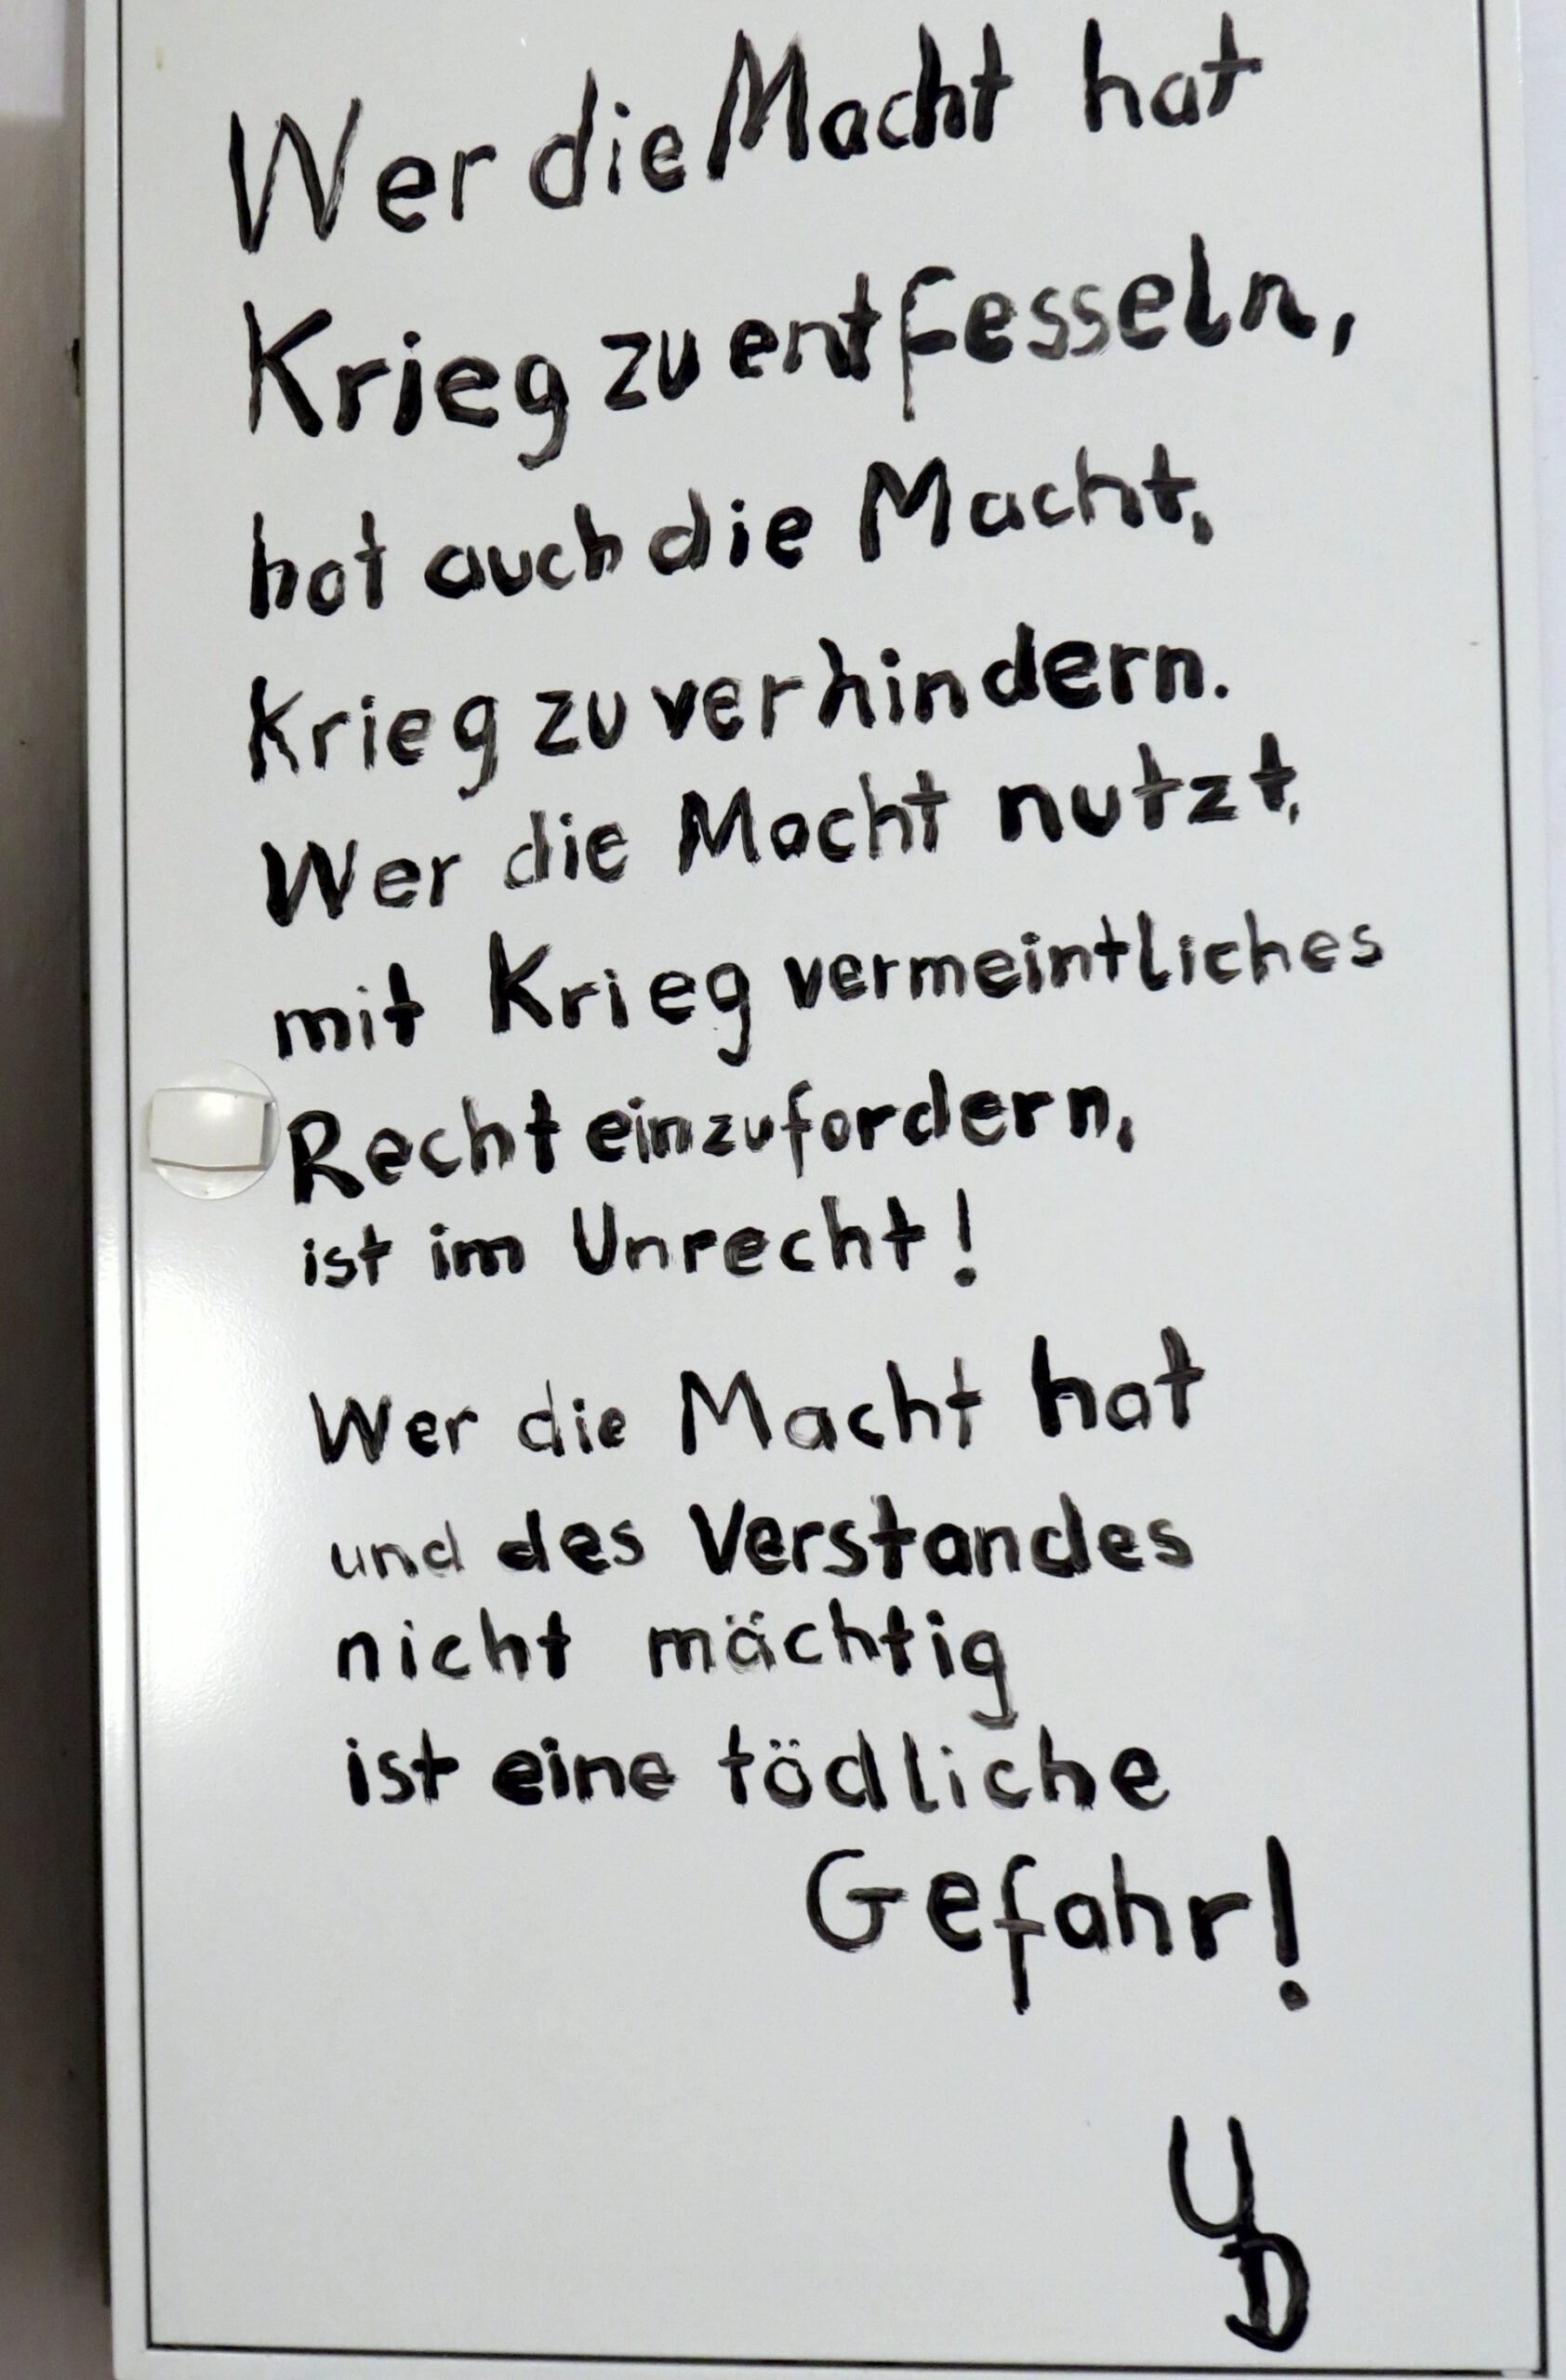 Wer die Macht hat
Krieg zu entfesseln,
hat auch die Macht,
Krieg zu verhindern.
Wer die Macht nutzt,
mit Krieg vermeintliches
Recht einzufordern,
ist im Unrecht!
Wer die Macht hat
und des Verstandes
nicht mächtig
ist eine tödliche
Gefahr!
U
D